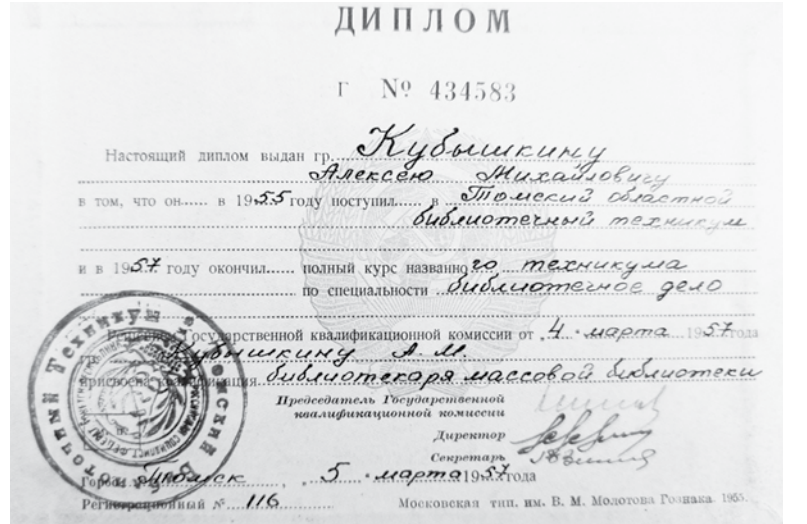 ДИПЛОМ
Г № 434583
Настоящий диплом выдан гр. Кубышкину
Алексею Михайловичу
в том, что он...... в 1955 году поступил...... в Томский областной
библиотечный техникум
и в 1957 году окончил...... полный курс названного техникума
по специальности библиотечное дело
Государственной квалификационной комиссии от „4" марта 1957 года
гр. Кубышкину А. М.
присвоена квалификация библиотекаря массовой библиотеки
Председатель Государственной
квалификационной комиссии
Директор
Секретарь
Город Томск , 5 " марта 1957 года
Регистрационный № 116
Московская тип. им. В. М. Молотова Гознака. 1955.
Техникум